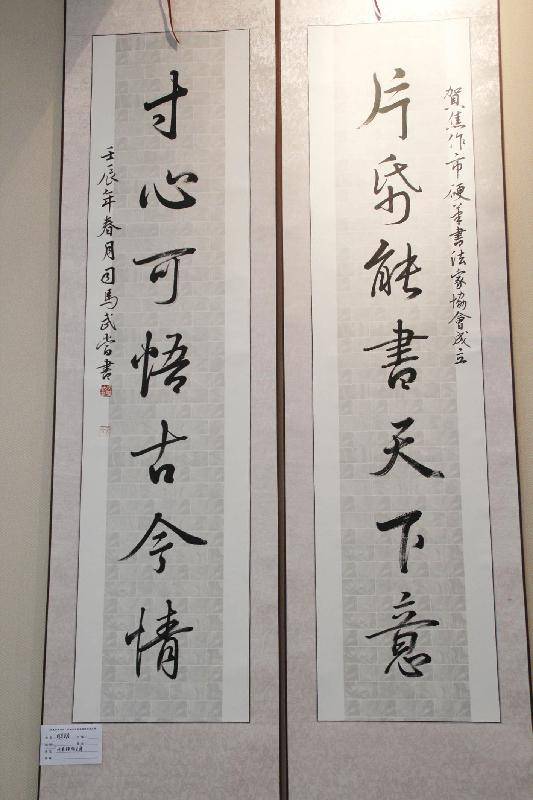 賀焦作市硬筆書法家協會成立
片帋能書天下意
寸心可悟古今情
壬辰年春月司馬武當書